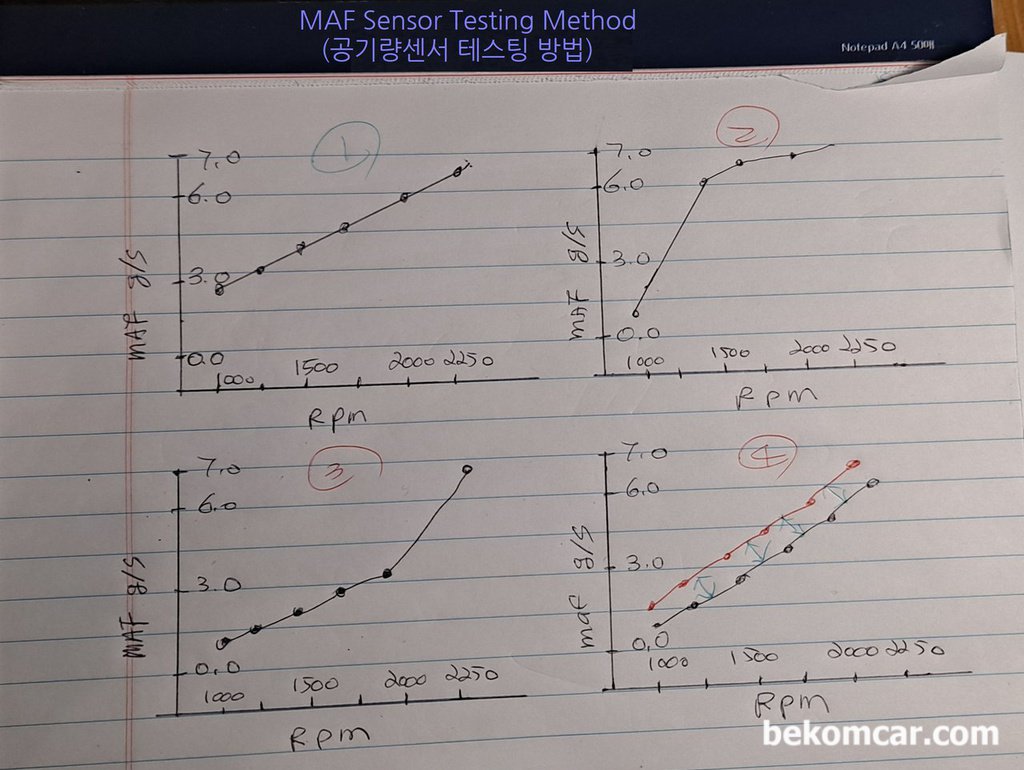 MAF Sensor Testing Method
(공기량센서 테스팅 방법)
Notepad A4 50매
1
7.0
6.0
3.0
0.0
MAF g/s
1000 1500 2000 2250
Rpm
2
7.0
6.0
3.0
0.0
MAF g/s
1000 1500 2000 2250
Rpm
3
7.0
6.0
3.0
0.0
MAF g/s
1000 1500 2000 2250
Rpm
4
7.0
6.0
3.0
0.0
maf g/s
1000 1500 2000 2250
Rpm
bekomcar.com